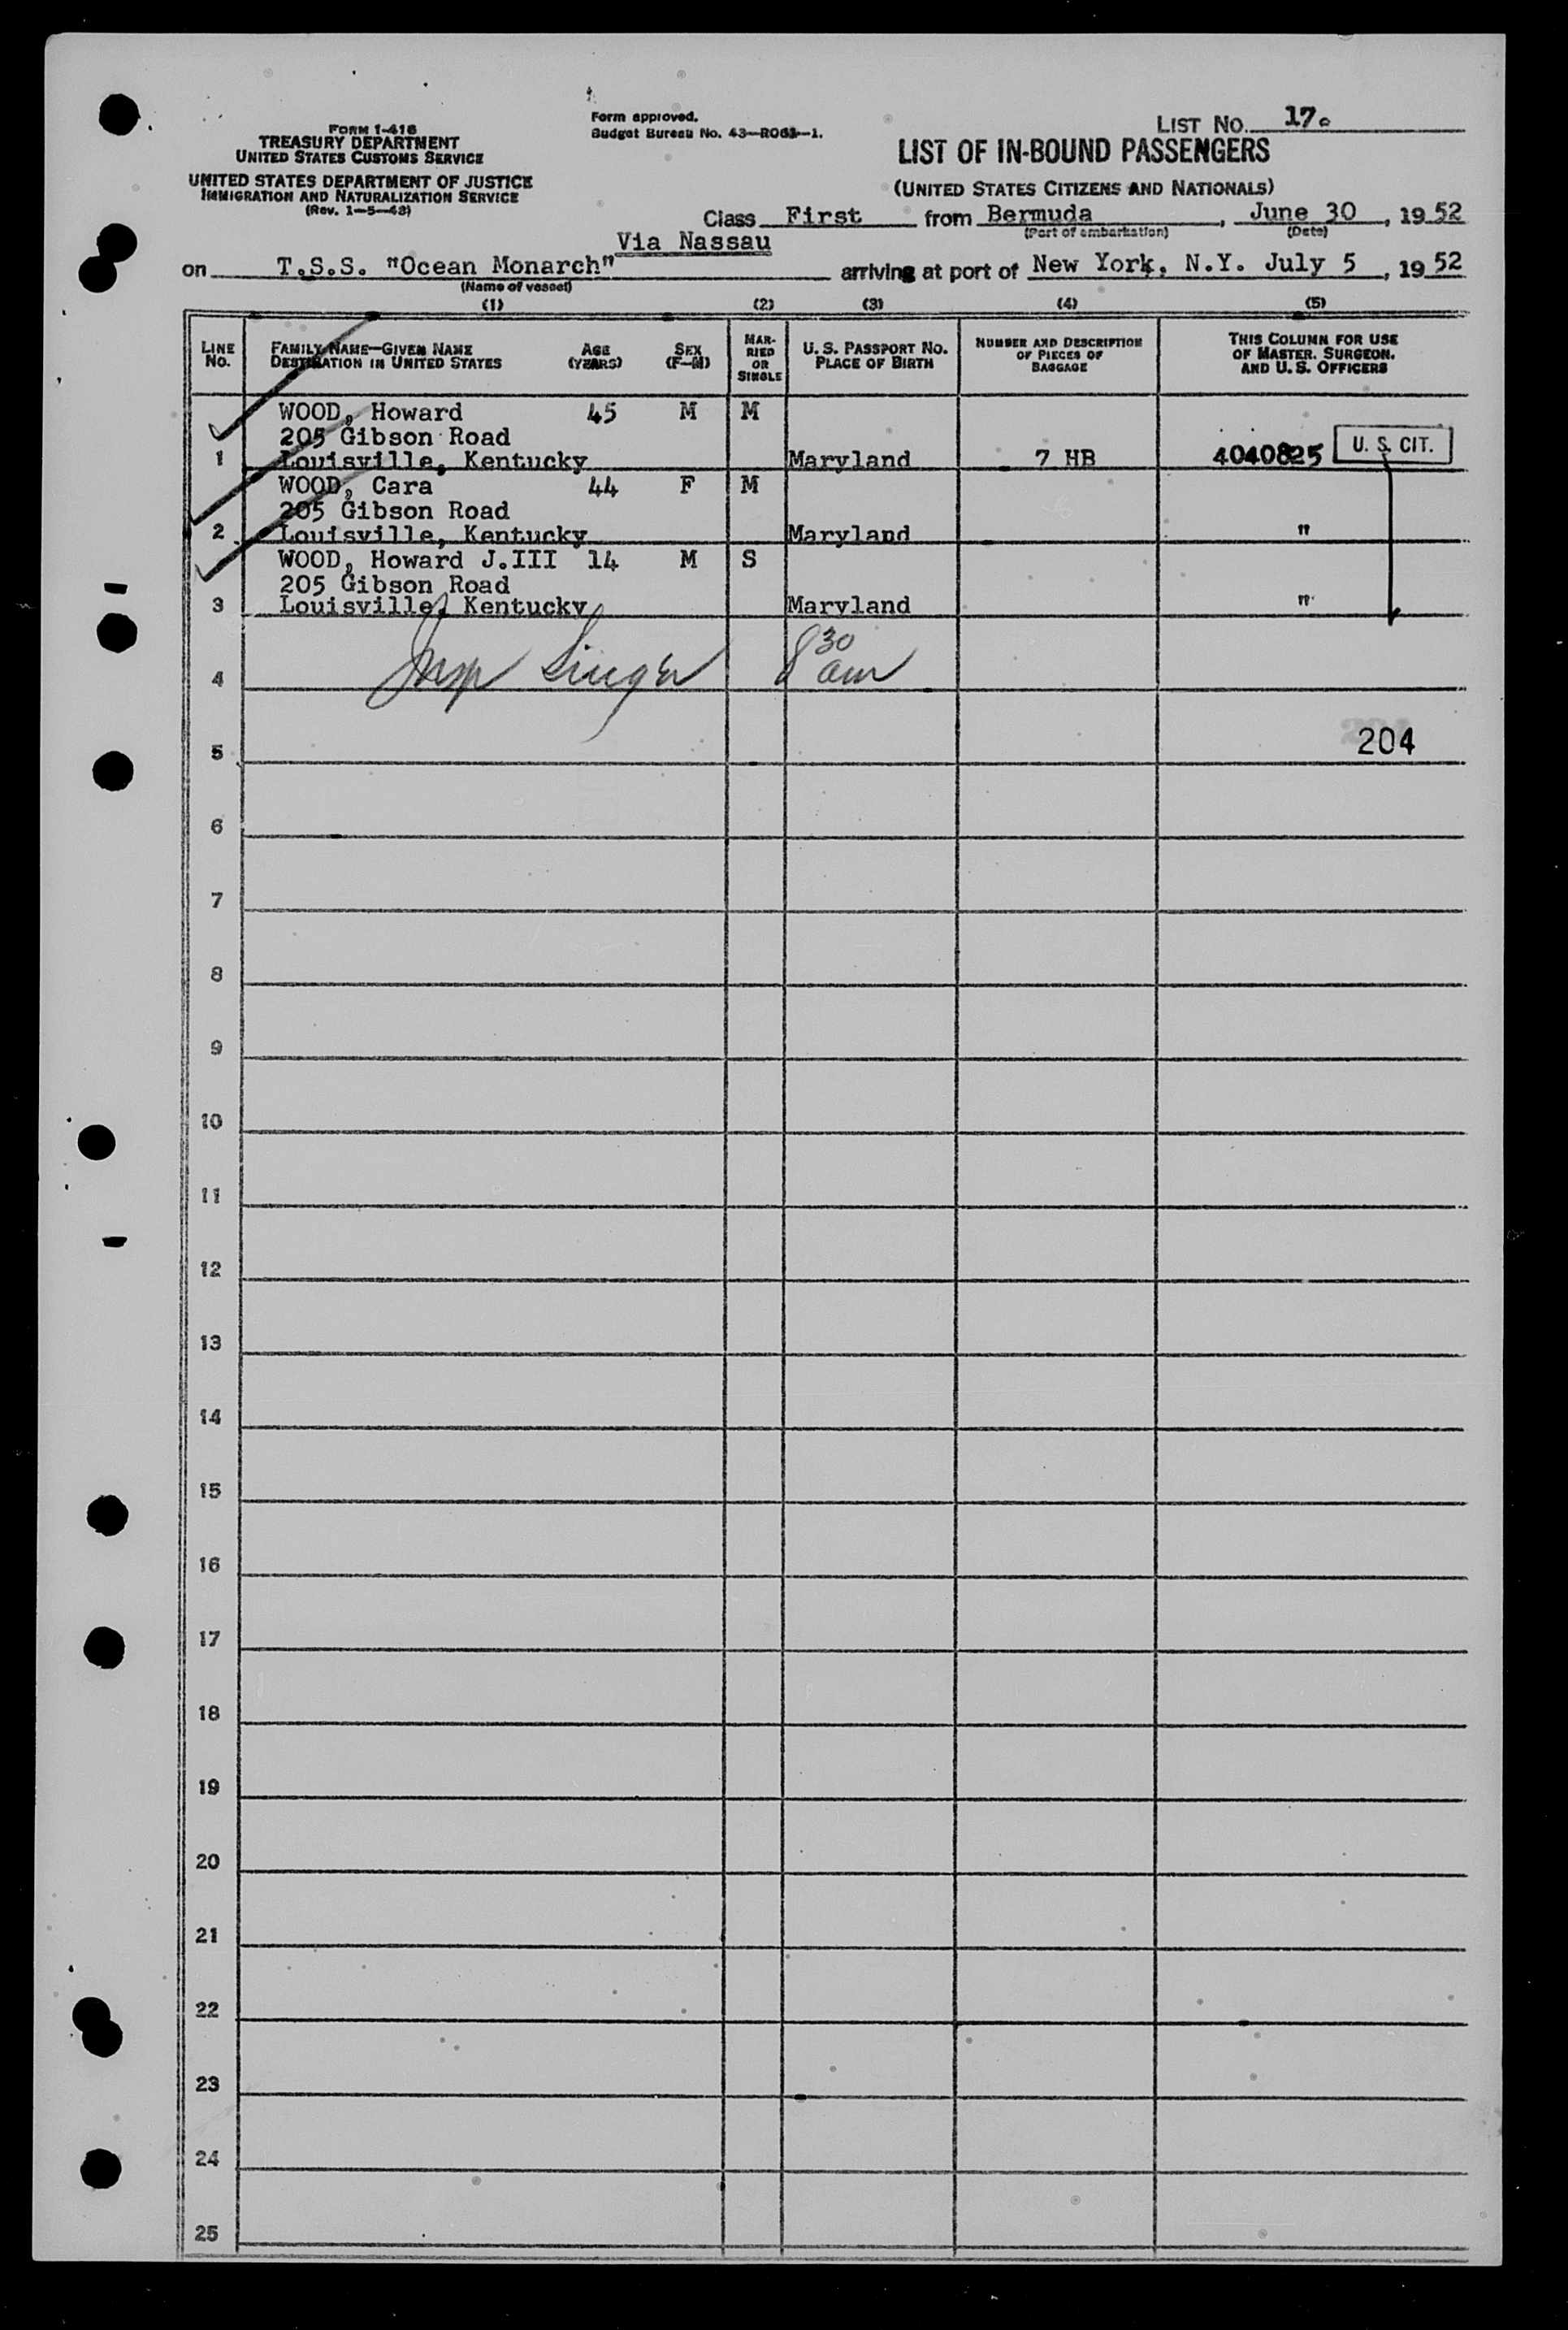 Form approved.
Budget Bureau No. 43—R061—1.
LIST NO. 17.
FORM I-416
TREASURY DEPARTMENT
UNITED STATES CUSTOMS SERVICE
UNITED STATES DEPARTMENT OF JUSTICE
IMMIGRATION AND NATURALIZATION SERVICE
LIST OF IN-BOUND PASSENGERS
(UNITED STATES CITIZENS AND NATIONALS)
Class First from Bermuda, June 30, 1952
(Port of embarkation) (Date)
Via Nassau
on T.S.S. "Ocean Monarch" arriving at port of New York, N.Y. July 5, 1952
(Name of vessel)
(1) (2) (3) (4) (5)
LINE NO. FAMILY NAME—GIVEN NAME DESTINATION IN UNITED STATES AGE (YEARS) SEX (F—M) MARRIED OR SINGLE U. S. PASSPORT NO. PLACE OF BIRTH NUMBER AND DESCRIPTION OF PIECES OF BAGGAGE THIS COLUMN FOR USE OF MASTER, SURGEON, AND U. S. OFFICERS
WOOD, Howard 45 M M
205 Gibson Road
1 Louisville, Kentucky Maryland 7 HB 4040825 U. S. CIT.
WOOD, Cara 44 F M
205 Gibson Road
2 Louisville, Kentucky Maryland "
WOOD, Howard J.III 14 M S
205 Gibson Road
3 Louisville, Kentucky Maryland "
Insp Singer 8 30 am
4
204
5
6
7
8
9
10
11
12
13
14
15
16
17
18
19
20
21
22
23
24
25